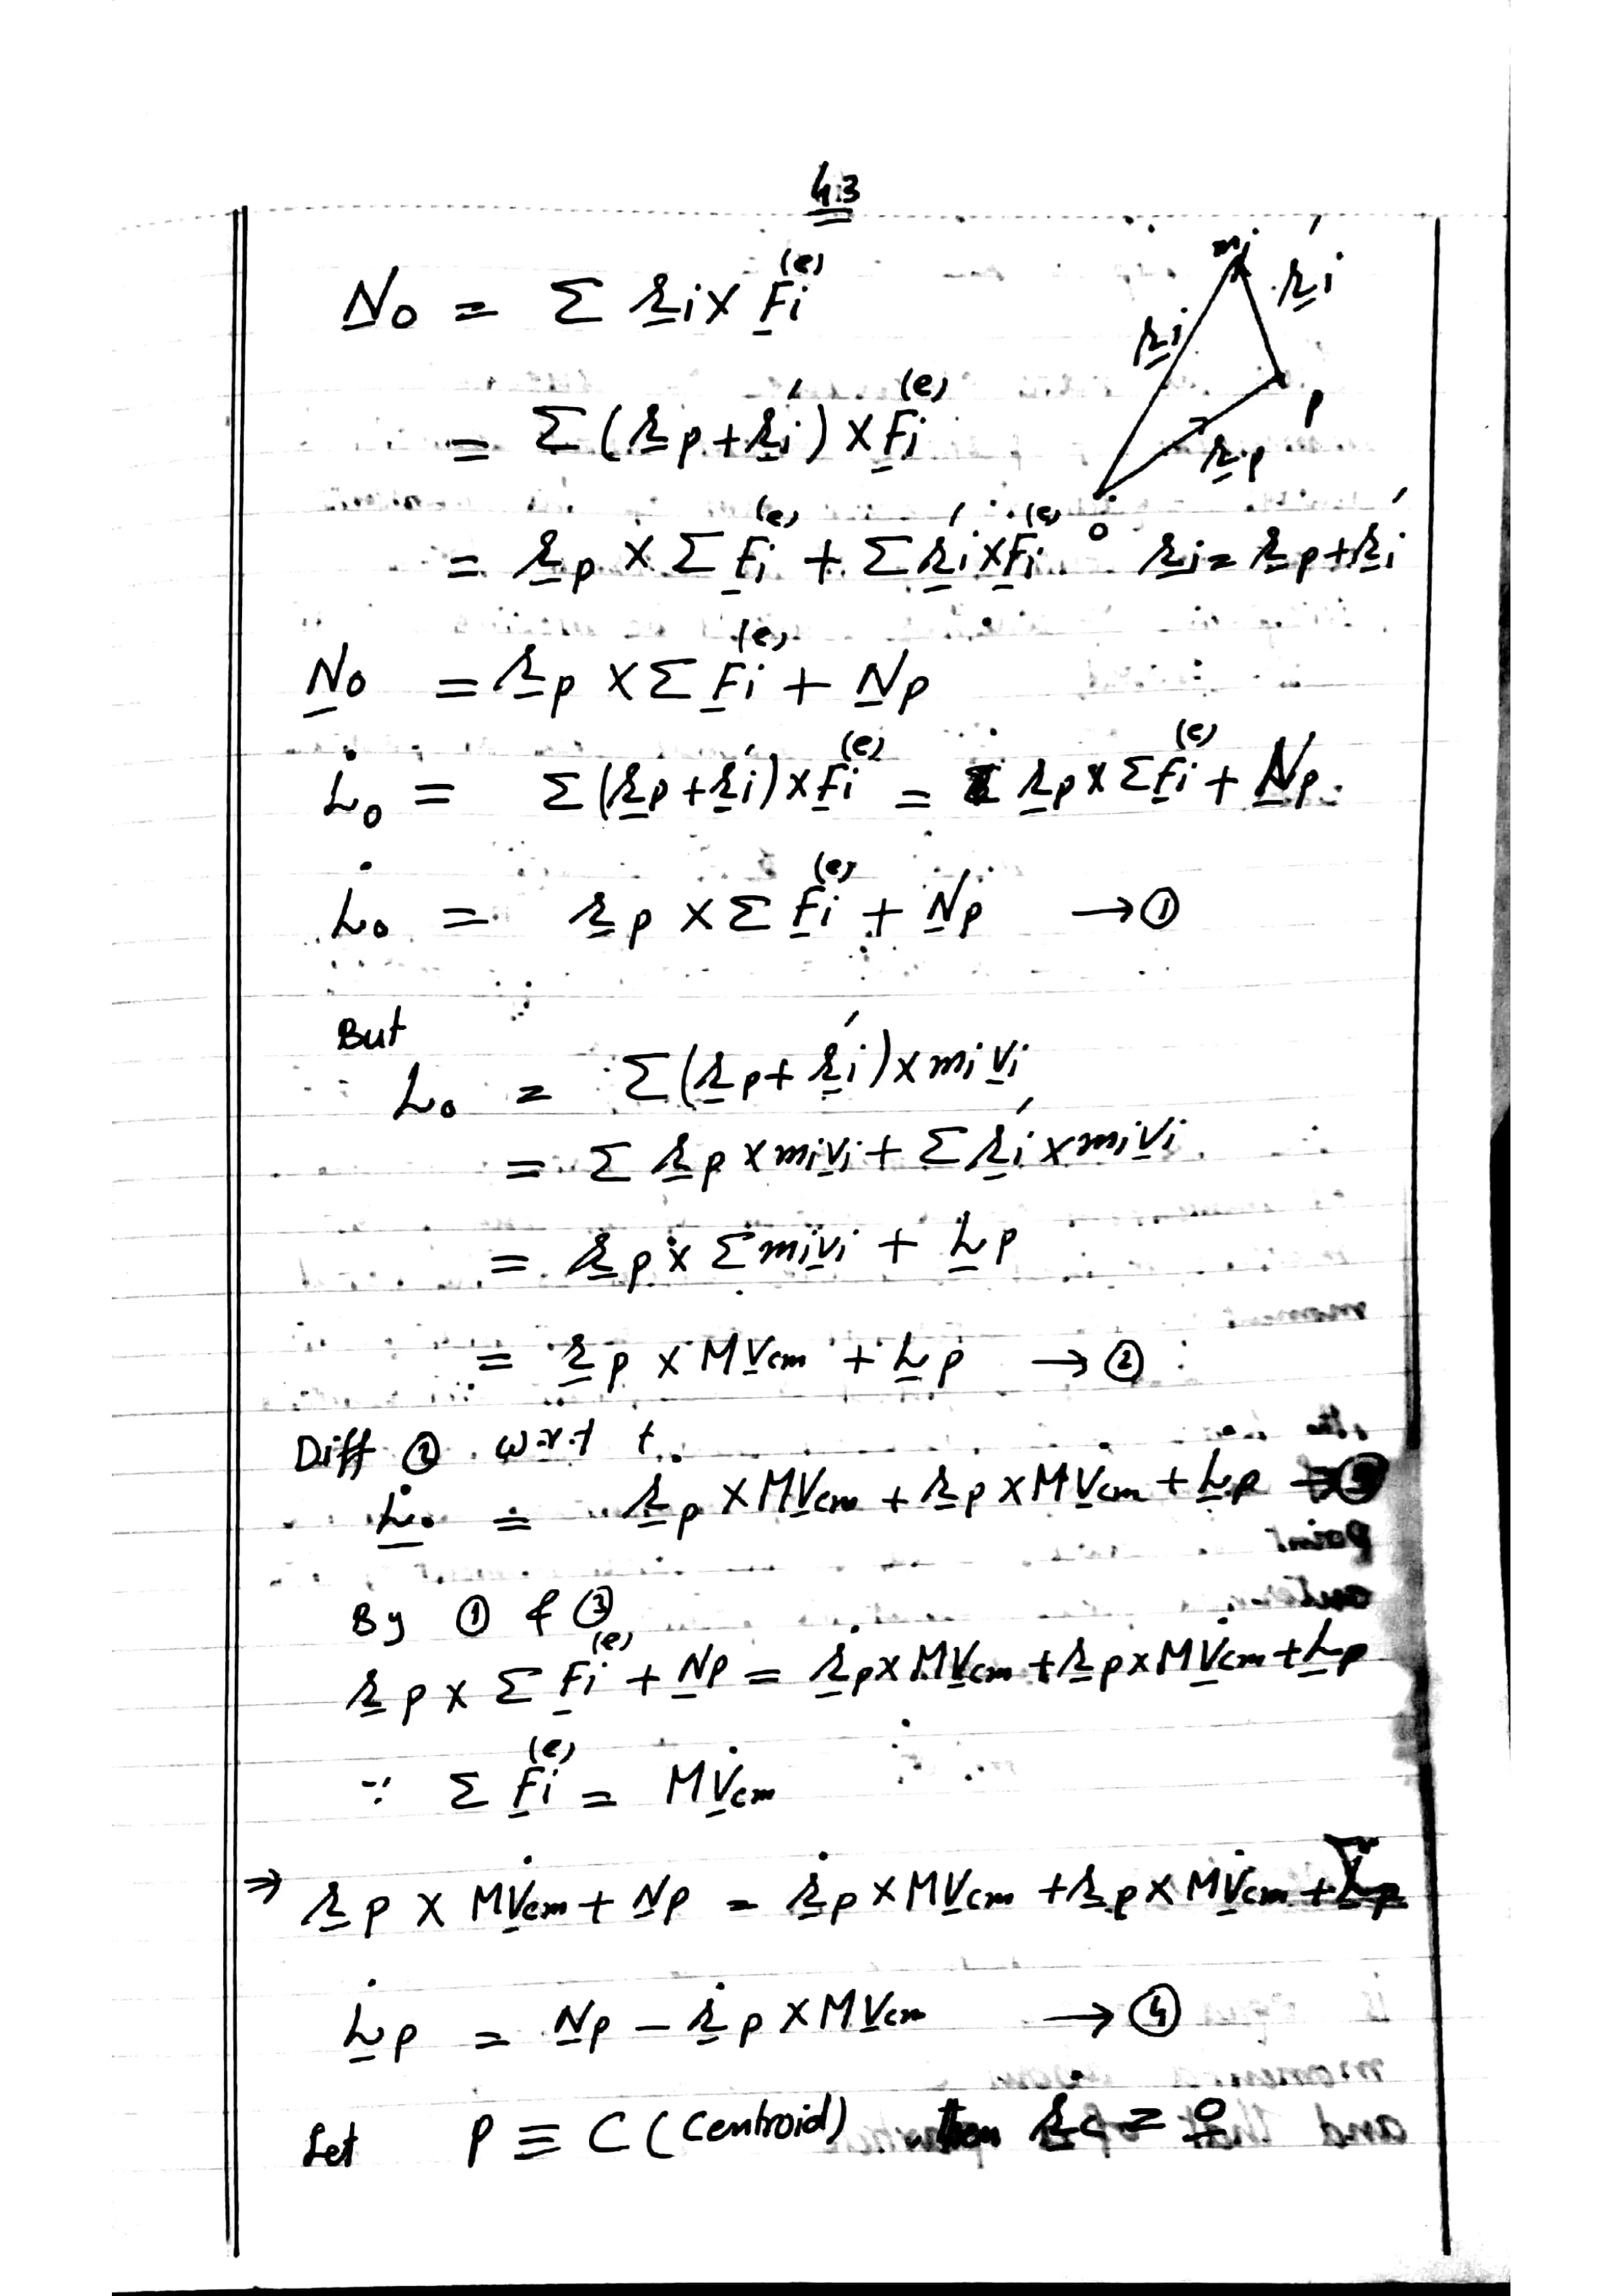 43
N̲o = Σ r̲i × F̲i⁽ᵉ⁾
mi
r̲i
r̲i′
p
r̲p
o
= Σ (r̲p + r̲i′) × F̲i⁽ᵉ⁾
= r̲p × Σ F̲i⁽ᵉ⁾ + Σ r̲i′ × F̲i⁽ᵉ⁾
r̲i = r̲p + r̲i′
N̲o = r̲p × Σ F̲i⁽ᵉ⁾ + N̲p
L̇o = Σ (r̲p + r̲i′) × F̲i⁽ᵉ⁾ = r̲p × Σ F̲i⁽ᵉ⁾ + N̲p
L̇o = r̲p × Σ F̲i⁽ᵉ⁾ + N̲p → ①
But
Lo = Σ (r̲p + r̲i′) × mi v̲i
= Σ r̲p × mi v̲i + Σ r̲i′ × mi v̲i
= r̲p × Σ mi v̲i + L̲p
= r̲p × M V̲cm + L̲p → ②
Diff ② w.r.t t.
L̲̇o = ṙ̲p × M V̲cm + r̲p × M V̲̇cm + L̲̇p → ③
By ① & ③
r̲p × Σ F̲i⁽ᵉ⁾ + N̲p = ṙ̲p × M V̲cm + r̲p × M V̲̇cm + L̲̇p
∵ Σ F̲i⁽ᵉ⁾ = M V̲̇cm
⇒ r̲p × M V̲̇cm + N̲p = ṙ̲p × M V̲cm + r̲p × M V̲̇cm + L̲̇p
L̲̇p = N̲p − ṙ̲p × M V̲cm → ④
Let P ≡ C (Centroid) then ṙ̲c = 0̲